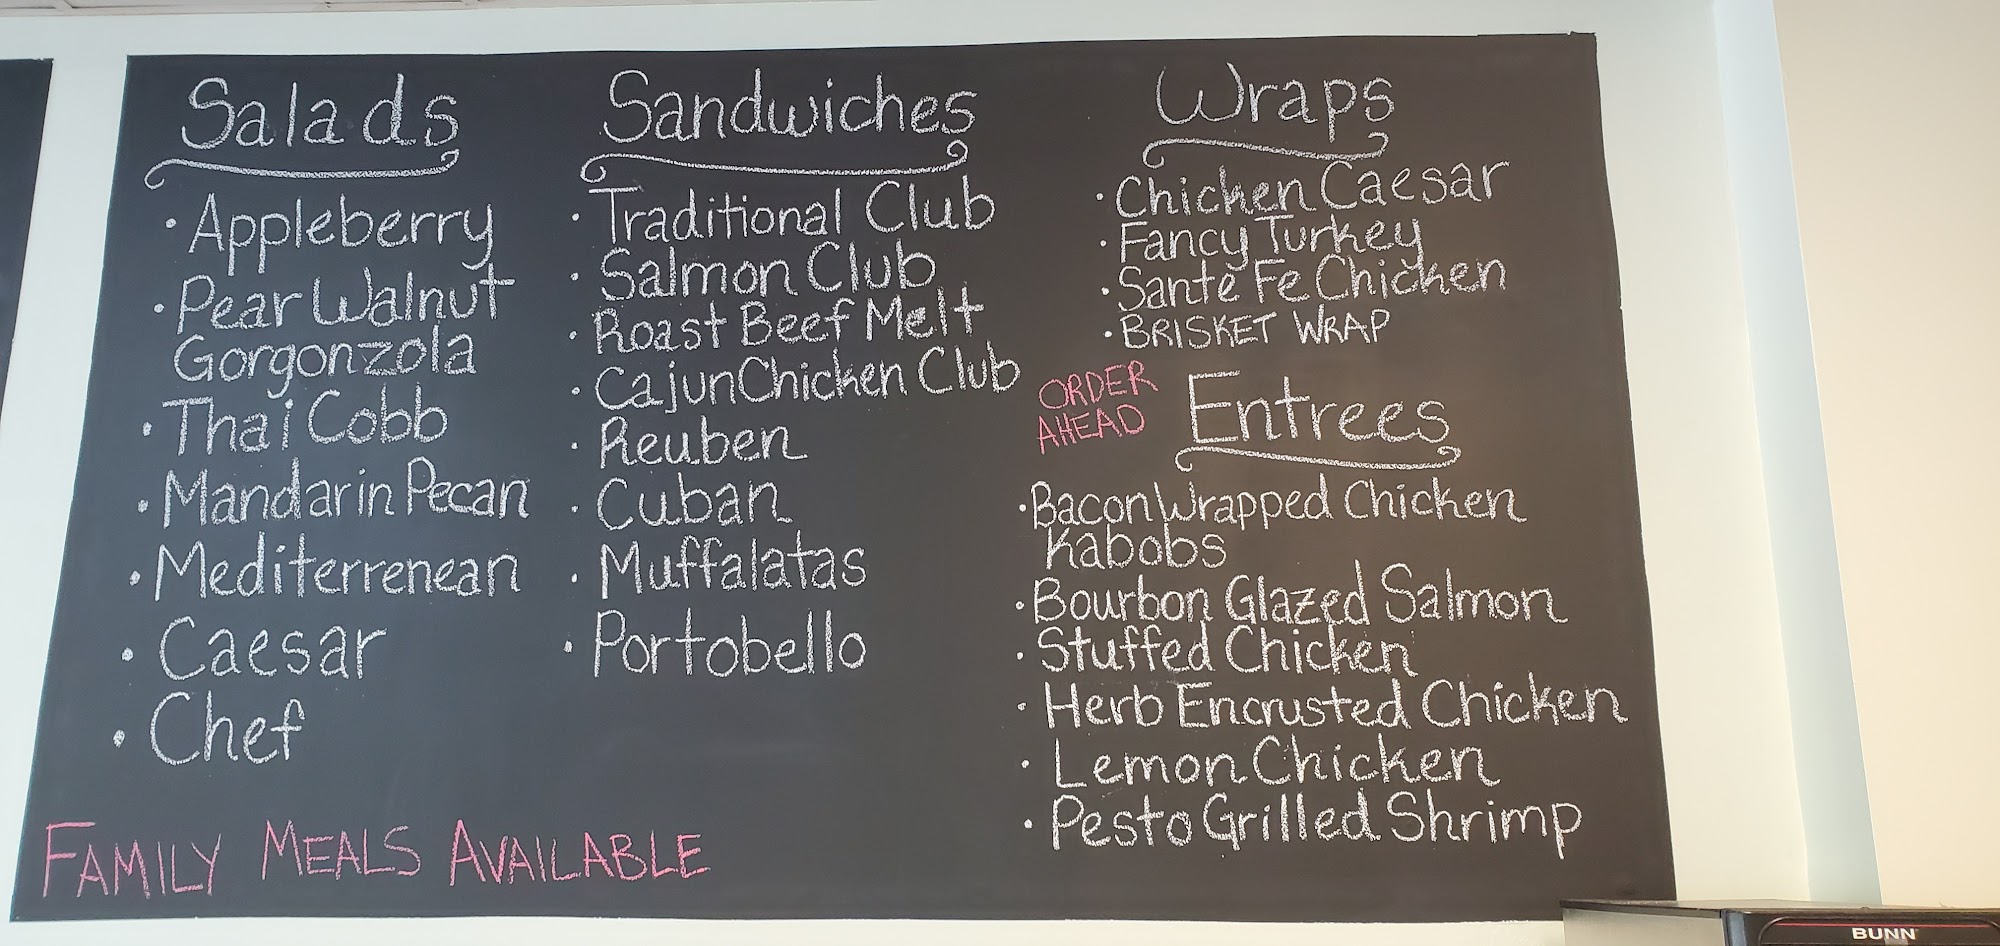 Salads
· Appleberry
· Pear Walnut
Gorgonzola
· Thai Cobb
· Mandarin Pecan
· Mediterrenean
· Caesar
· Chef
Sandwiches
· Traditional Club
· Salmon Club
· Roast Beef Melt
· Cajun Chicken Club
· Reuben
· Cuban
· Muffalatas
· Portobello
Wraps
· Chicken Caesar
· Fancy Turkey
· Sante Fe Chicken
· BRISKET WRAP
ORDER
AHEAD
Entrees
· Bacon Wrapped Chicken
Kabobs
· Bourbon Glazed Salmon
· Stuffed Chicken
· Herb Encrusted Chicken
· Lemon Chicken
· Pesto Grilled Shrimp
FAMILY MEALS AVAILABLE
BUNN